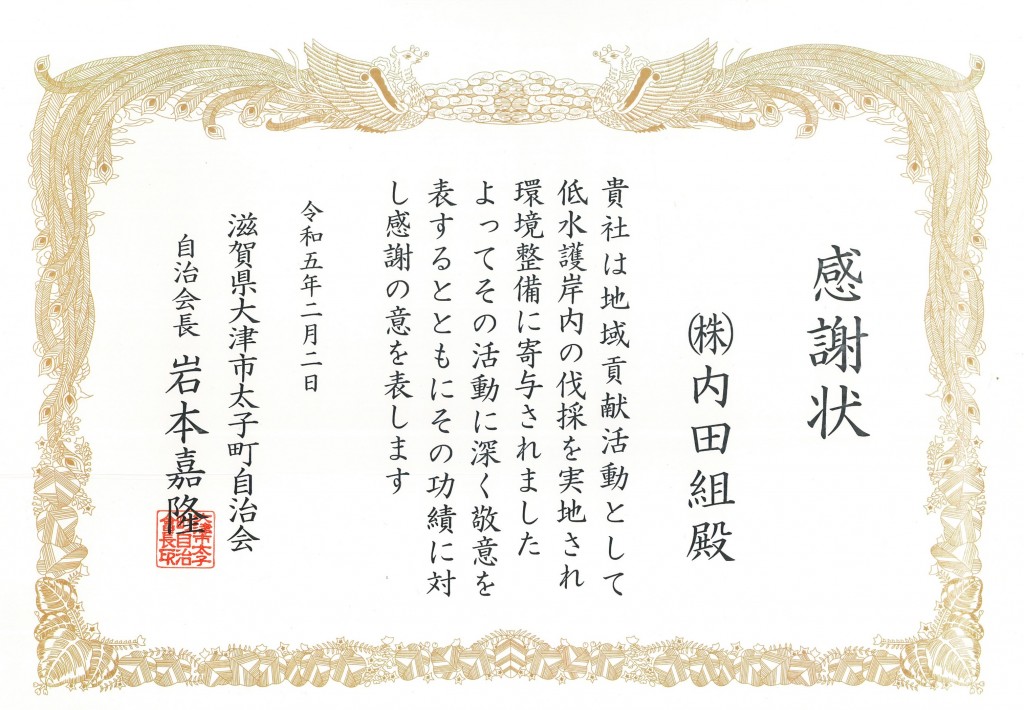 感謝状
㈱内田組殿
貴社は地域貢献活動として
低水護岸内の伐採を実地され
環境整備に寄与されました
よってその活動に深く敬意を
表するとともにその功績に対
し感謝の意を表します
令和五年二月二日
滋賀県大津市太子町自治会
自治会長 岩本嘉隆
大津市太子
町自治
会長印